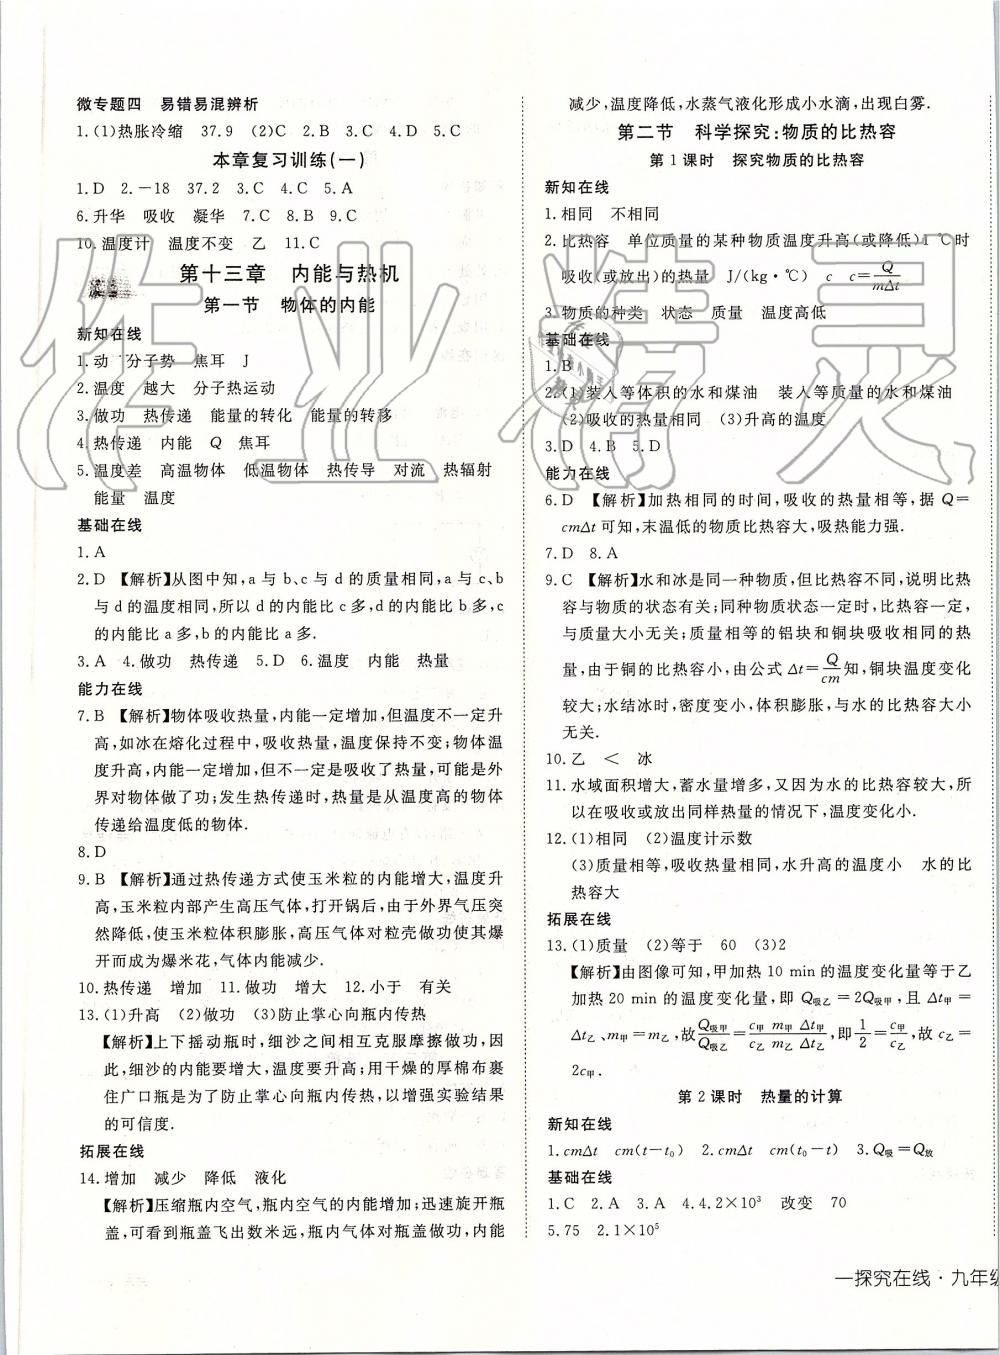 微专题四　易错易混辨析
1.(1)热胀冷缩　37.9　(2)C　2.B　3.C　4.D　5.C
本章复习训练(一)
1.D　2.－18　37.2　3.C　4.C　5.A
6.升华　吸收　凝华　7.C　8.B　9.C
10.温度计　温度不变　乙　11.C
第十三章　内能与热机
第一节　物体的内能
新知在线
1.动　分子势　焦耳　J
2.温度　越大　分子热运动
3.做功　热传递　能量的转化　能量的转移
4.热传递　内能　Q　焦耳
5.温度差　高温物体　低温物体　热传导　对流　热辐射
能量　温度
基础在线
1.A
2.D　【解析】从图中知,a与b、c与d的质量相同,a与c、b
与d的温度相同,所以d的内能比c多,d的内能比b多,c
的内能比a多,b的内能比a多.
3.A　4.做功　热传递　5.D　6.温度　内能　热量
能力在线
7.B　【解析】物体吸收热量,内能一定增加,但温度不一定升
高,如冰在熔化过程中,吸收热量,温度保持不变;物体温
度升高,内能一定增加,但不一定是吸收了热量,可能是外
界对物体做了功;发生热传递时,热量从温度高的物体
传递给温度低的物体.
8.D
9.B　【解析】通过热传递方式使玉米粒的内能增大,温度升
高,玉米粒内部产生高压气体,打开锅后,由于外界气压突
然降低,使玉米粒体积膨胀,高压气体对粒壳做功使其爆
开而成为爆米花,气体内能减少.
10.热传递　增加　11.做功　增大　12.小于　有关
13.(1)升高　(2)做功　(3)防止掌心向瓶内传热
【解析】上下摇动瓶时,细沙之间相互克服摩擦做功,因
此,细沙的内能要增大,温度要升高;用干燥的厚棉布裹
住广口瓶是为了防止掌心向瓶内传热,以增强实验结果
的可信度.
拓展在线
14.增加　减少　降低　液化
【解析】压缩瓶内空气,瓶内空气的内能增加;迅速旋开瓶
盖,可看到瓶盖飞出数米远,瓶内气体对瓶盖做功,内能
减少,温度降低,水蒸气液化形成小水滴,出现白雾.
第二节　科学探究:物质的比热容
第1课时　探究物质的比热容
新知在线
1.相同　不相同
2.比热容　单位质量的某种物质温度升高(或降低)1 ℃时
吸收(或放出)的热量　J/(kg·℃)　c　c=Q/mΔt
3.物质的种类　状态　质量　温度高低
基础在线
1.B
2.(1)装入等体积的水和煤油　装入等质量的水和煤油
(2)吸收的热量相同　(3)升高的温度
3.D　4.B　5.D
能力在线
6.D　【解析】加热相同的时间,吸收的热量相等,据 Q=
cmΔt可知,末温低的物质比热容大,吸热能力强.
7.D　8.A
9.C　【解析】水和冰是同一种物质,但比热容不同,说明比热
容与物质的状态有关;同种物质状态一定时,比热容一定,
与质量大小无关;质量相等的铝块和铜块吸收相同的热
量,由于铜的比热容小,由公式 Δt=Q/cm知,铜块温度变化
较大;水结冰时,密度变小,体积膨胀,与水的比热容大小
无关.
10.乙　＜　冰
11.水域面积增大,蓄水量增多,又因为水的比热容较大,所
以在吸收或放出同样热量的情况下,温度变化小.
12.(1)相同　(2)温度计示数
(3)质量相等,吸收热量相同,水升高的温度小　水的比
热容大
拓展在线
13.(1)质量　(2)等于　60　(3)2
【解析】由图像可知,甲加热 10 min 的温度变化量等于乙
加热 20 min 的温度变化量,即 Q吸乙=2Q吸甲,且 Δt甲=
Δt乙、m甲=m乙,故Q吸甲/Q吸乙=c甲/c乙 m甲/m乙 Δt甲/Δt乙,即1/2=c甲/c乙,故 c乙=
2c甲.
第2课时　热量的计算
新知在线
1.cmΔt　cm(t－t₀)　2.cmΔt　cm(t₀－t)　3.Q吸=Q放
基础在线
1.C　2.A　3.A　4.4.2×10³　改变　70
5.75　2.1×10⁵
一探究在线·九年级
作业精灵